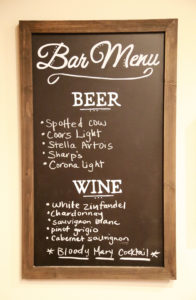 Bar Menu
BEER
• Spotted Cow
• Coors Light
• Stella Artois
• Sharp's
• Corona Light
WINE
• White Zinfandel
• Chardonnay
• Sauvignon blanc
• pinot grigio
• Cabernet Sauvignon
* Bloody Mary Cocktail *